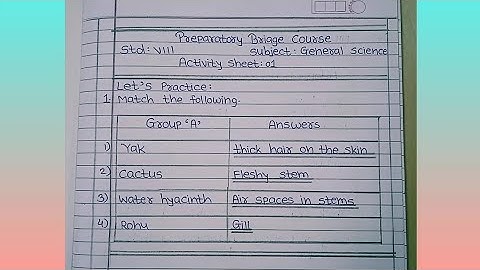 Preparatory Briage Course
Std: VIII Subject: General Science
Activity Sheet: 01
Let's Practice:
1. Match the following.
Group 'A' Answers
1) Yak thick hair on the skin
2) Cactus Fleshy stem
3) Water hyacinth Air spaces in stems
4) Rohu Gill